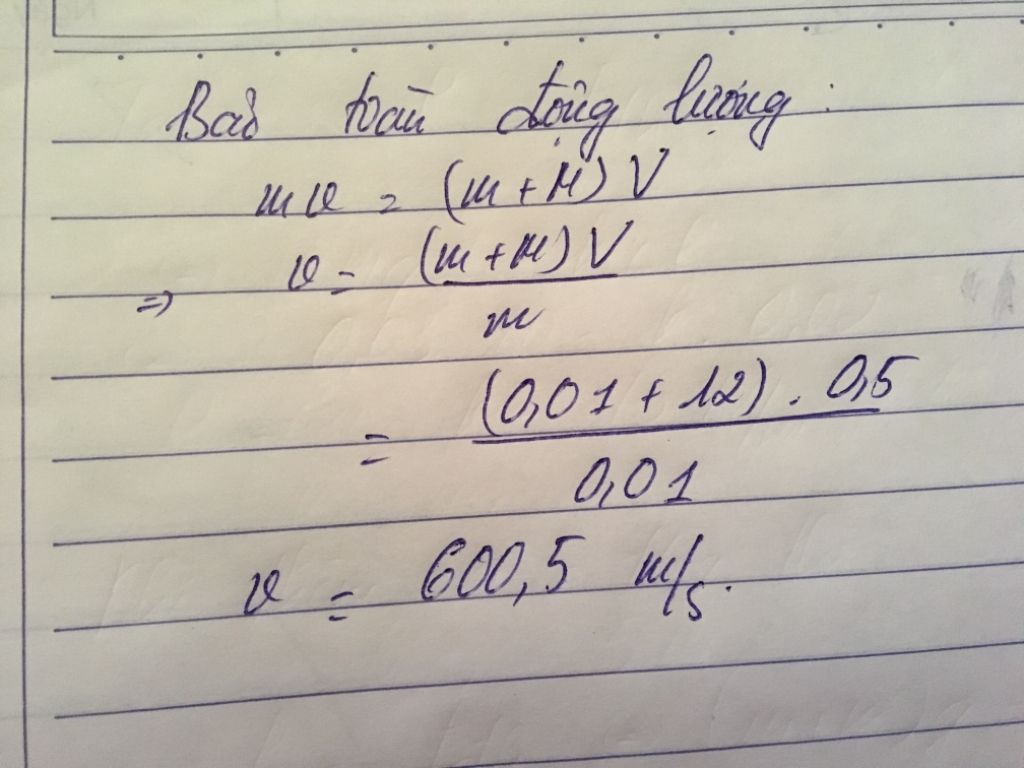 Bảo toàn động lượng :
mv = (m + M) V
=> v = (m + M) V
m
= (0,01 + 12) . 0,5
0,01
v = 600,5 m/s.